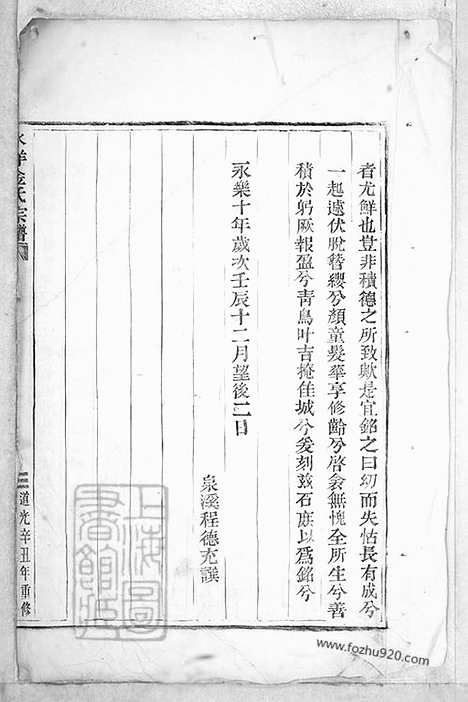 者尤鮮也豈非積德之所致歟是宜銘之曰幼而失怙長有成兮
一起遠伏脫簪纓兮顏童髮華享修齡兮啓衾無愧全所生兮善
積於躬厥報盈兮青烏叶吉掩佳城兮爰刻玆石庶以爲銘兮
永樂十年歲次壬辰十二月望後二日
泉溪程德充譔
金氏宗譜
三
道光辛丑年重修
上海圖書館藏
www.fozhu920.com